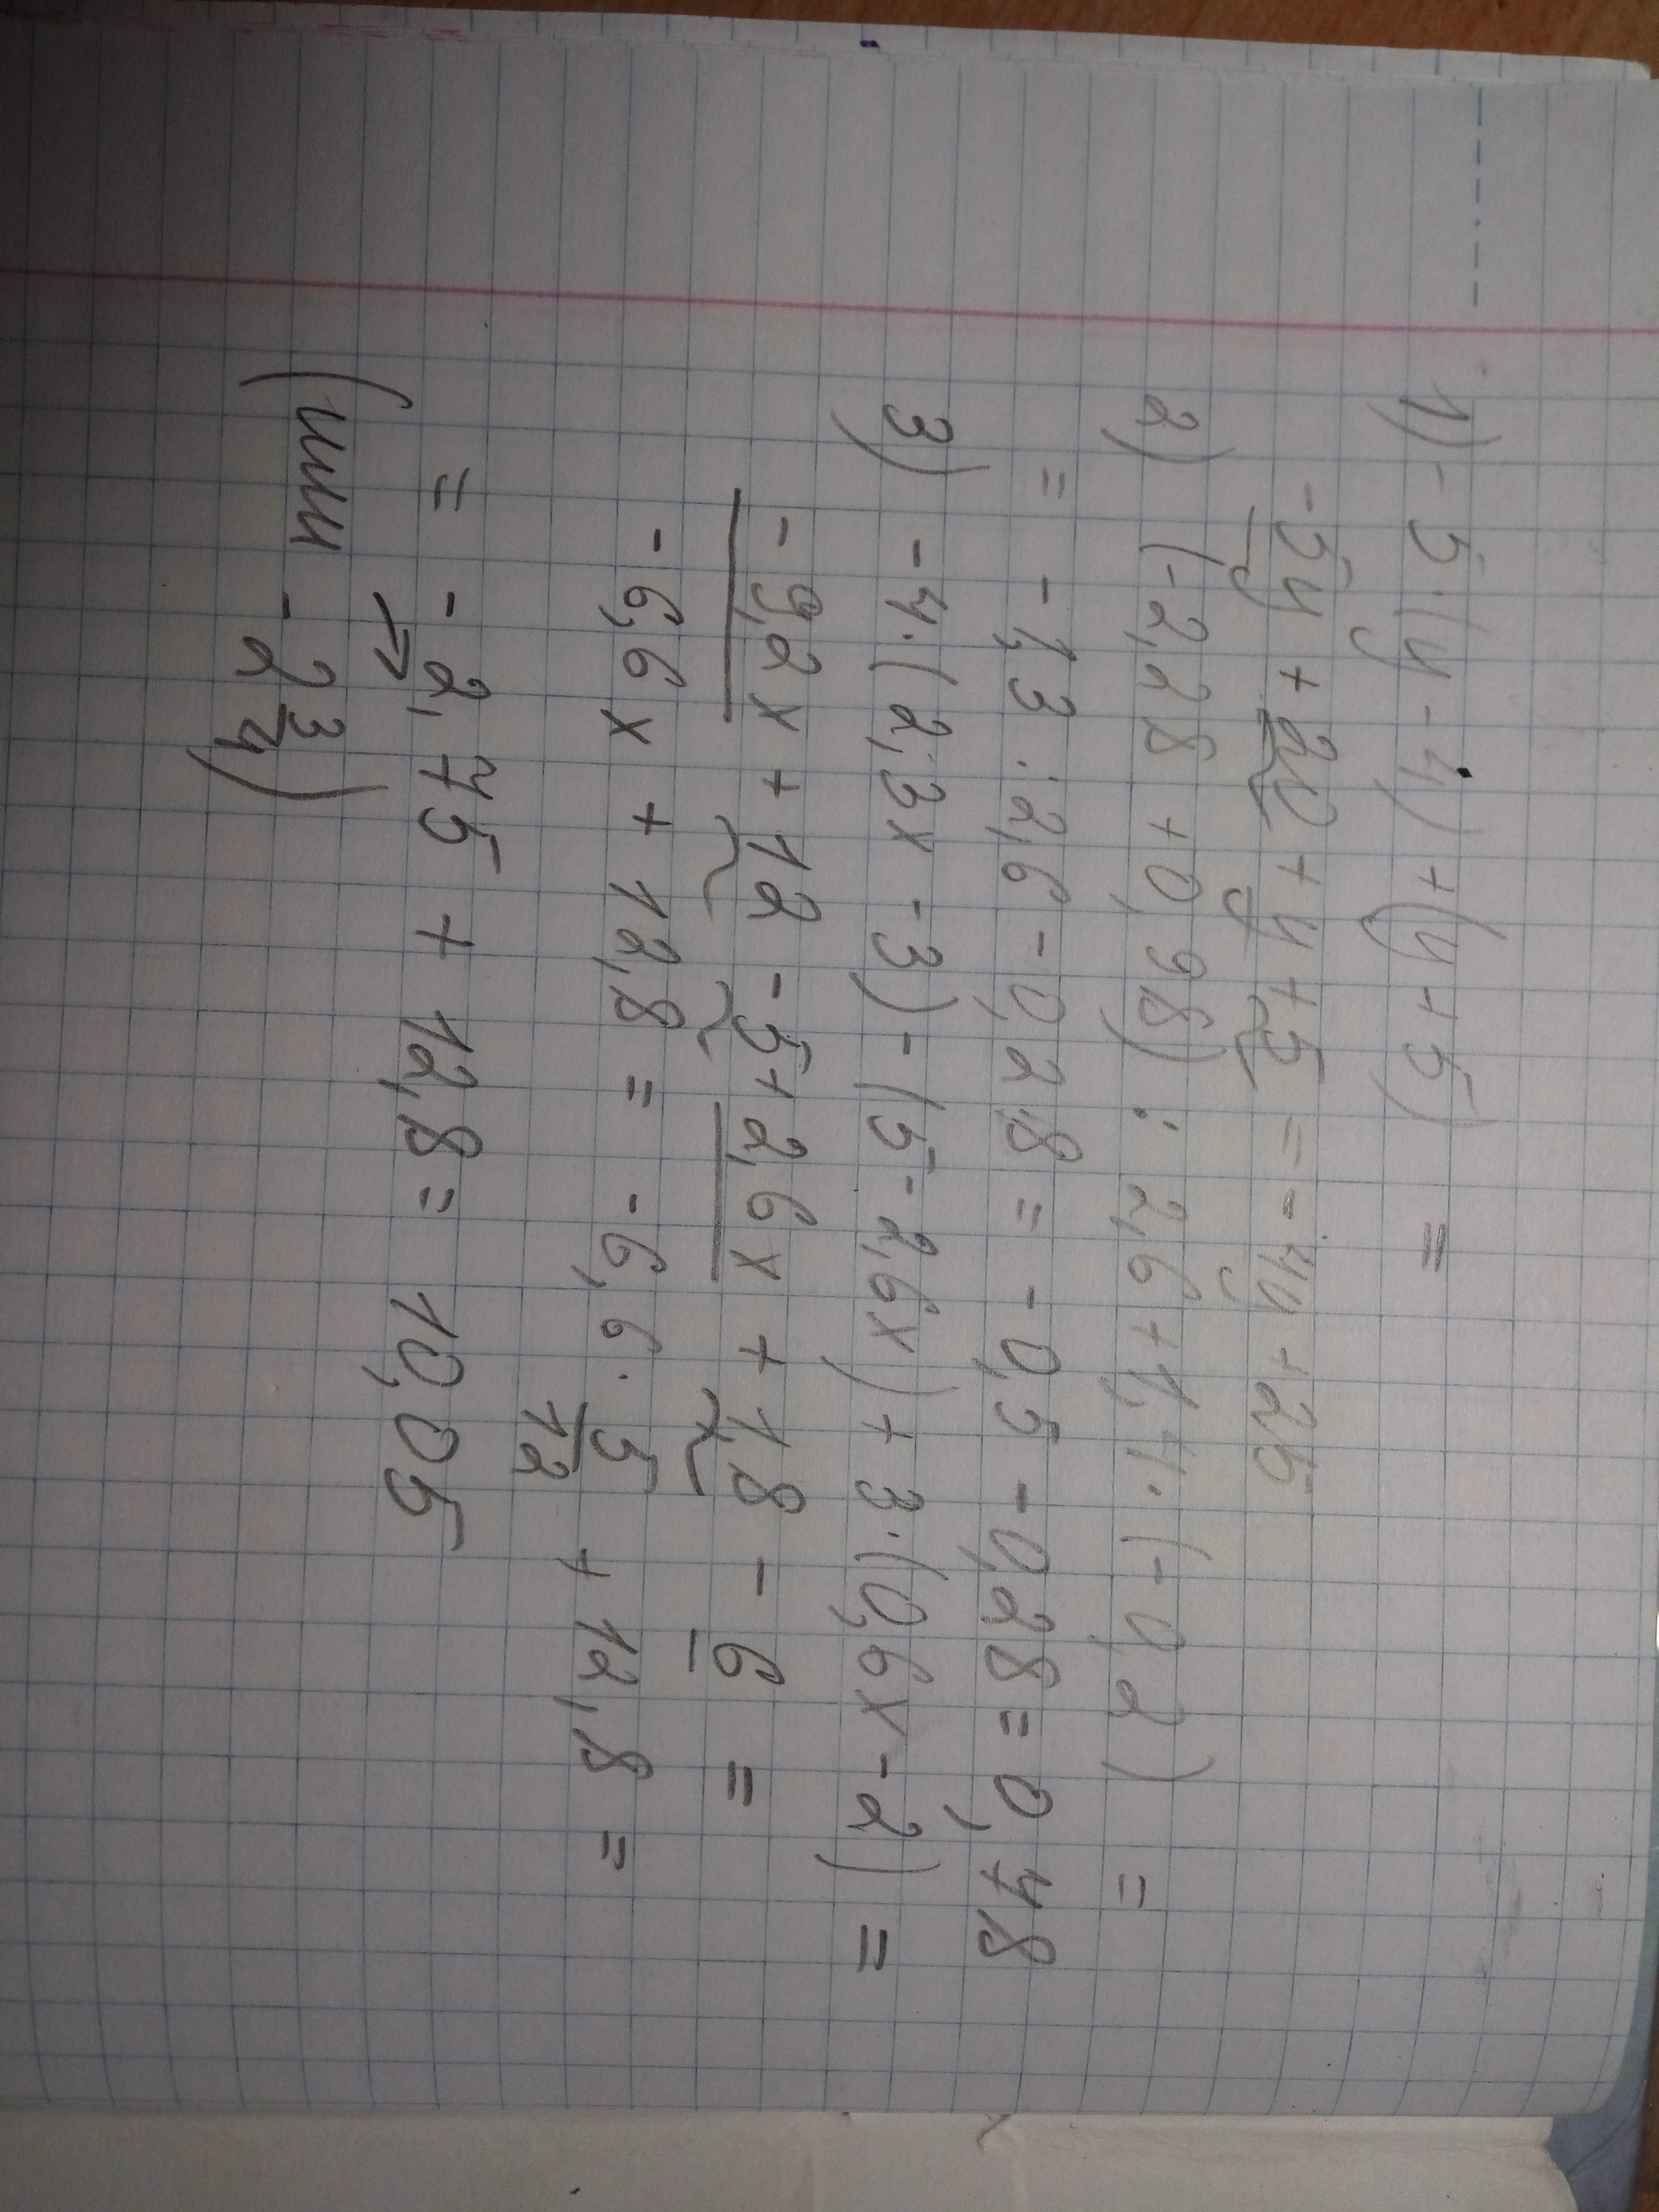 1) -5·(y-4)+(y+5) =
-5y+20+y+5 = -4y+25
2) (-2,28+0,98) : 2,6+1,4·(-0,2) =
= -1,3:2,6-0,28 = -0,5-0,28=0,78
3) -4·(2,3x-3)-(5-2,6x)+3·(0,6x-2) =
-9,2x+12-5+2,6x+1,8-6 =
-6,6x+12,8= -6,6·5/12+12,8=
= -2,75+12,8= 10,05
(или -2 3/4)